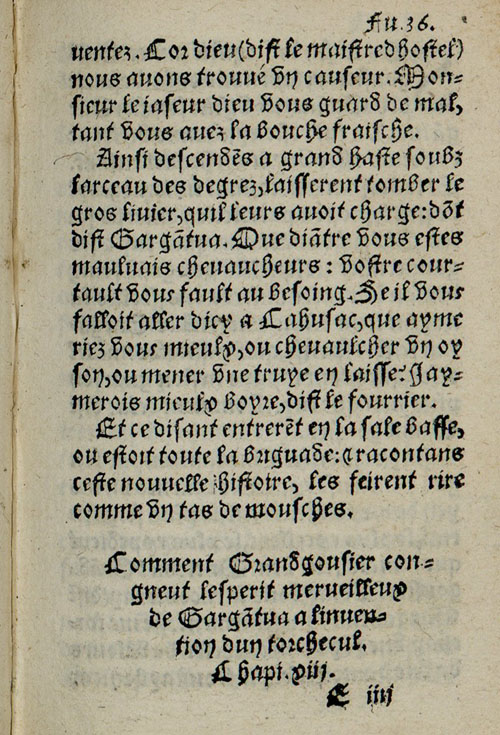 Fu.36.
uentez. Cor dieu (dist le maistredhostel)
nous auons trouué vn causeur. Mon-
sieur le iaseur dieu vous guard de mal,
tant vous auez la bouche fraische.
Ainsi descendẽs a grand haste soubz
larceau des degrez, laisserent tomber le
gros liuier, quil leurs auoit charge: dõt
dist Gargãtua. Que diãtre vous estes
mauluais cheuaucheurs: vostre cour-
tault vous fault au besoing. Se il vous
falloit aller dicy a Cahusac, que ayme
riez vous mieulx, ou cheuaulcher vn oy
son, ou mener vne truye en laisse? Jay-
merois mieulx boyre, dist le fourrier.
Et ce disant entrerẽt en la sale basse,
ou estoit toute la briguade: & racontans
ceste nouuelle histoire, les feirent rire
comme vn tas de mousches.
Comment Grandgousier con-
gneut lesperit merueilleux
de Gargãtua a linuen-
tion dun torchecul.
Chapi. xiij.
E iiij